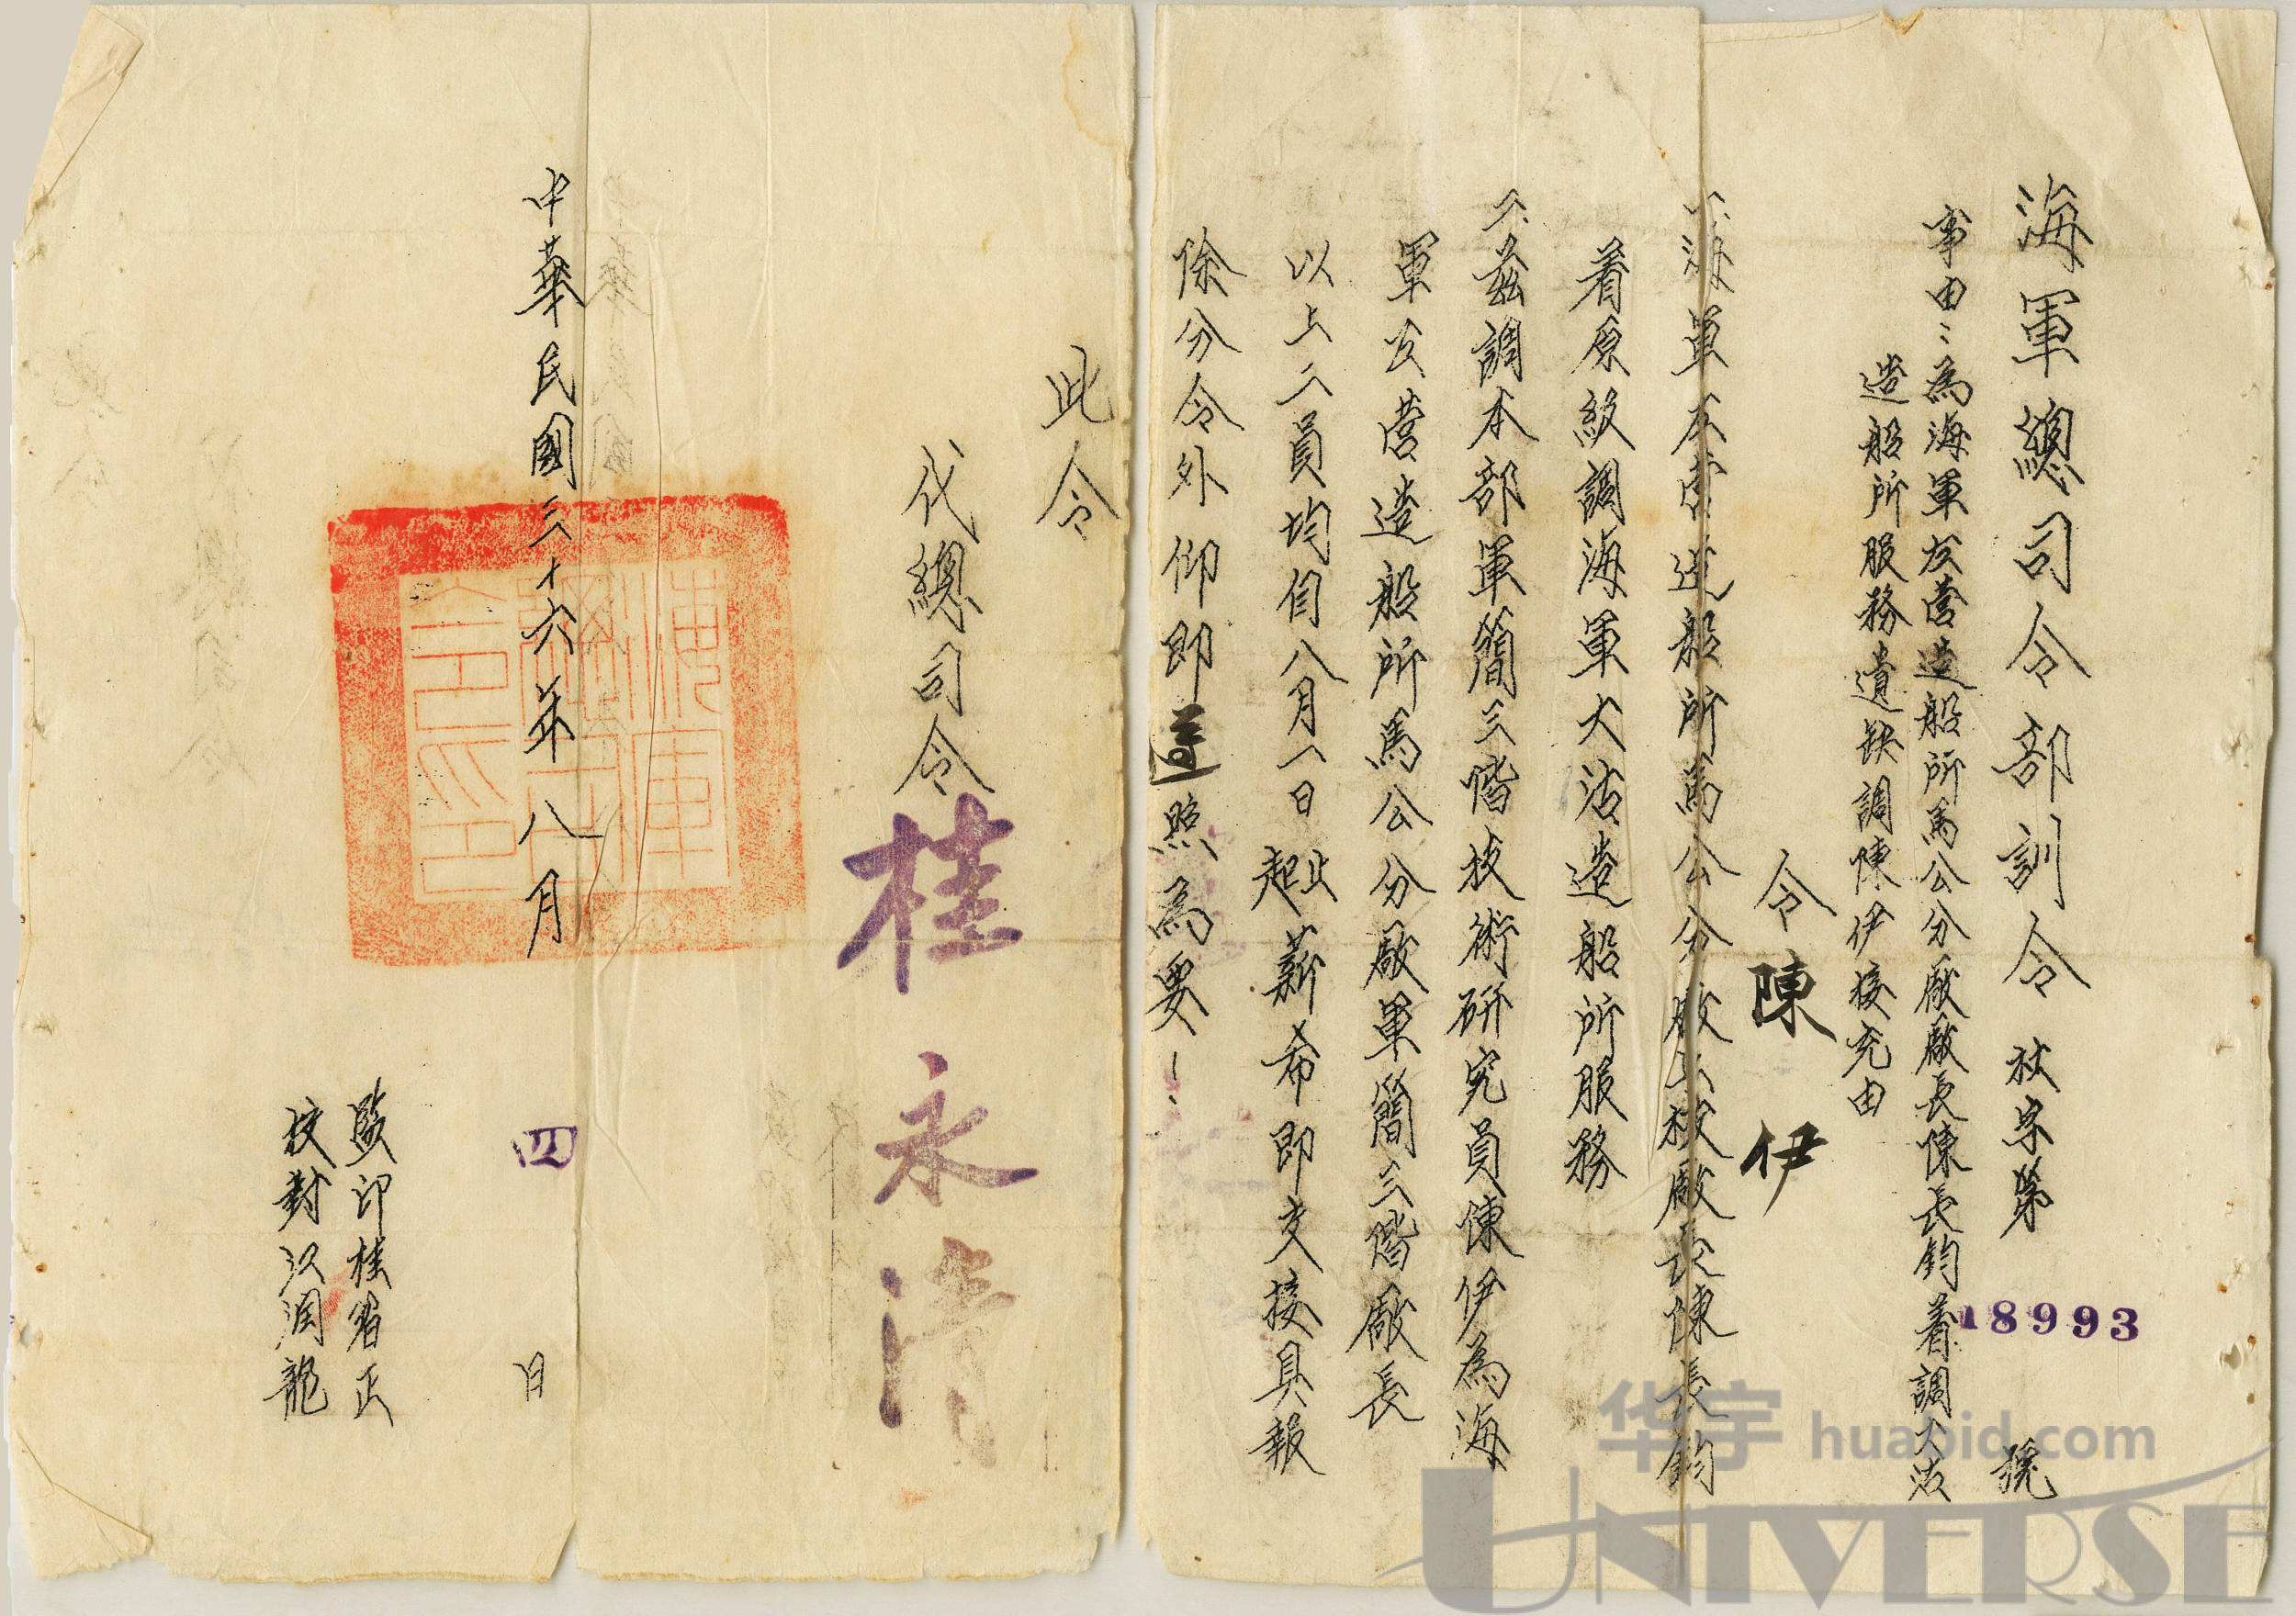 海軍總司令部訓令 秋字第18993號
事由:為海軍公營造船所馬公分廠廠長陳長鈞着調大沽
造船所服務遺缺調陳伊接充由
令陳伊
一、海軍公營造船所馬公分廠上校廠長陳長鈞
着原級調海軍大沽造船所服務
二、茲調本部軍簡三階技術研究員陳伊為海
軍公營造船所馬公分廠軍簡三階廠長
以上二員均自八月一日起止薪希即交接具報
除分令外仰即遵照為要!
此令
代總司令桂永清
中華民國三十六年八月四日
監印桂宕正
校對江潤龍
海軍總司令部印
华宇 huabid.com
UNIVERSE